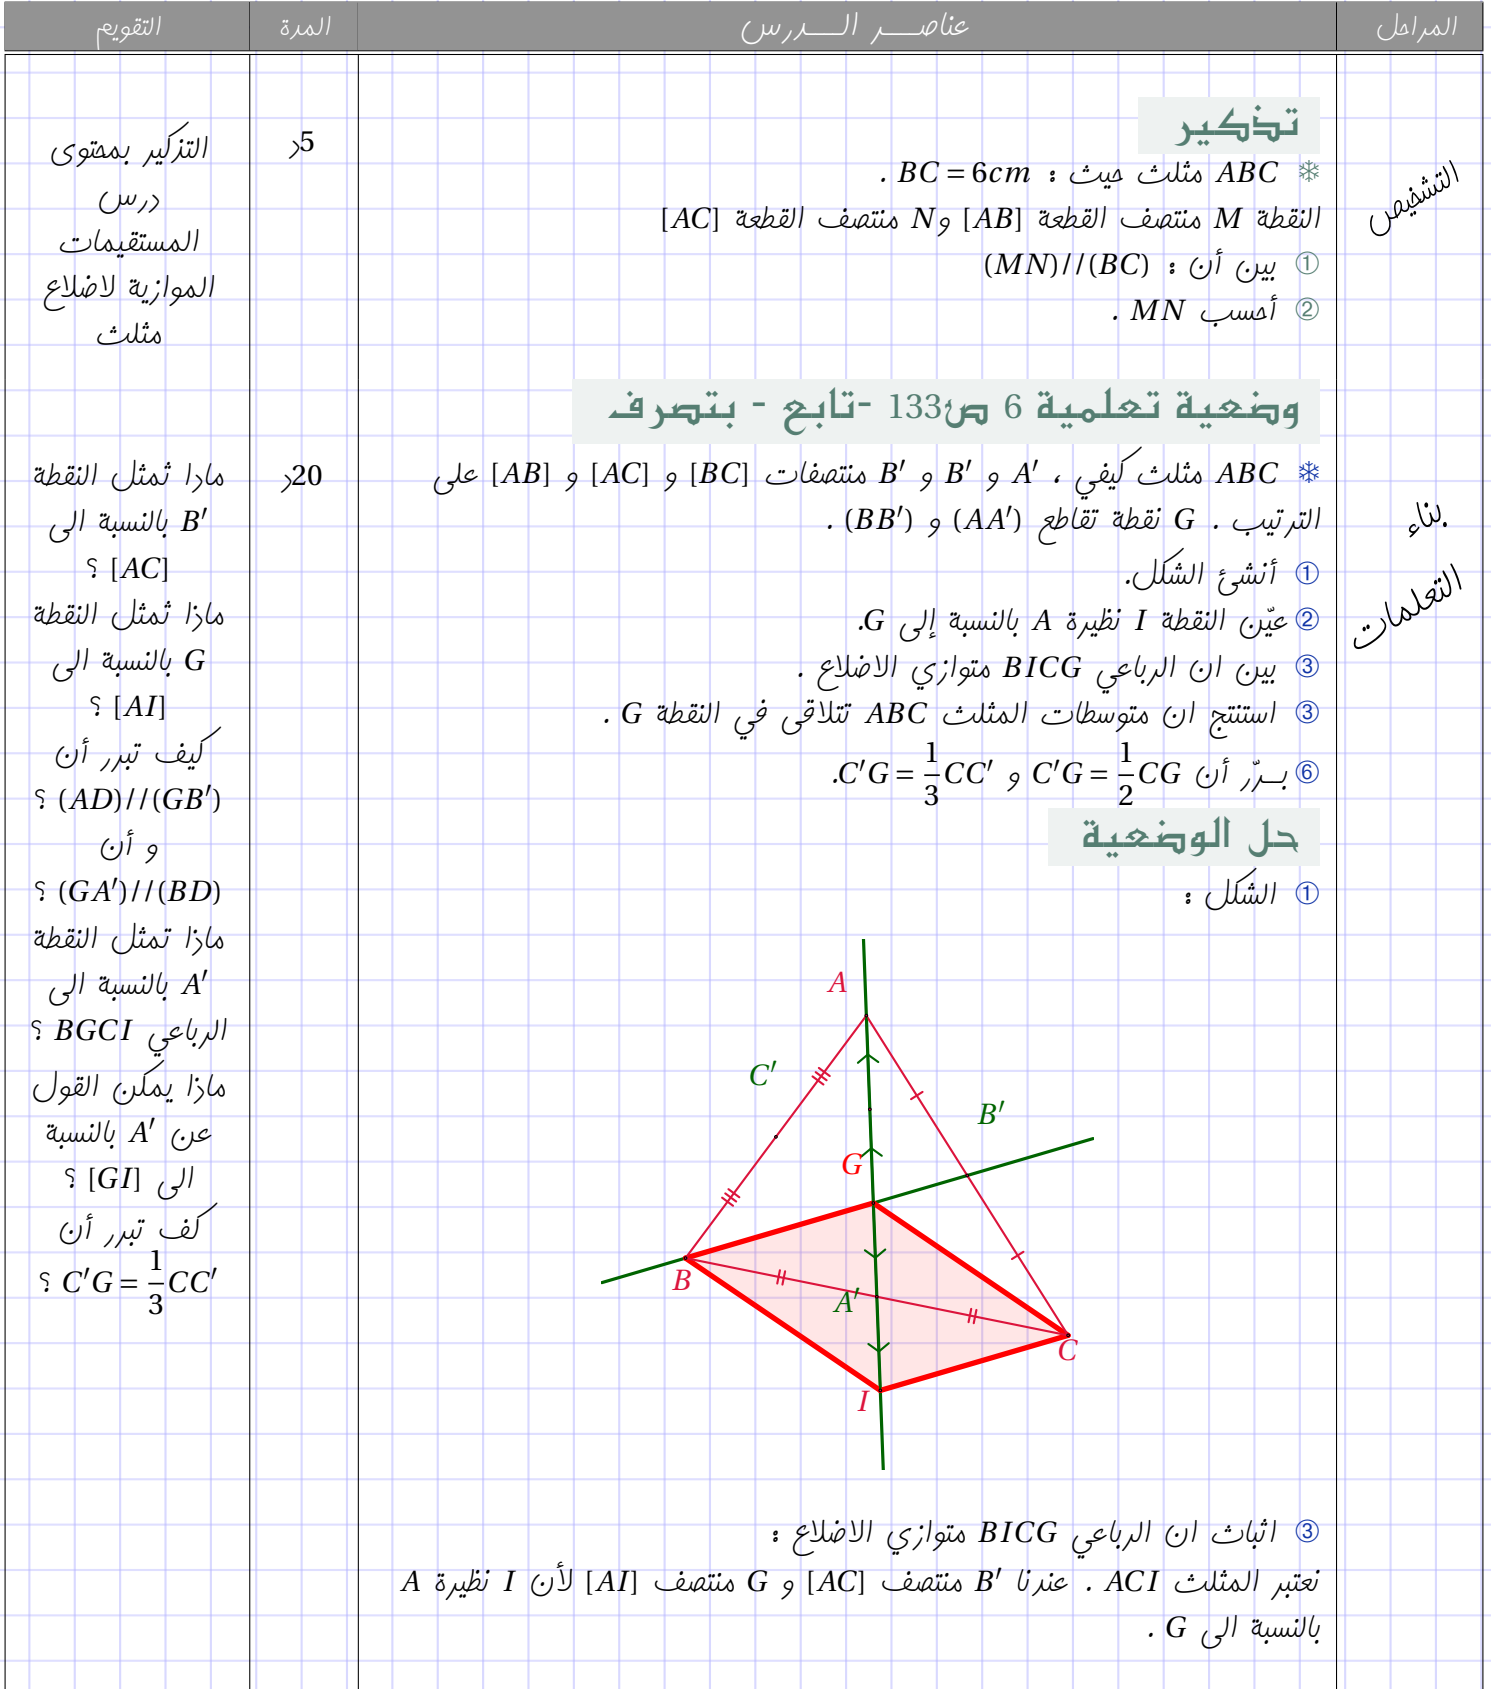 المراحل
عناصـــر الـــدرس
المدة
التقويم
التشخيص
تذكير
❄ ABC مثلث حيث : BC = 6cm .
النقطة M منتصف القطعة [AB] و N منتصف القطعة [AC]
① بين أن : (MN)//(BC)
② أحسب MN .
5د
التذكير بمحتوى
درس
المستقيمات
الموازية لاضلاع
مثلث
بناء
التعلمات
وضعية تعلمية 6 ص133 -تابع - بتصرف
❄ ABC مثلث كيفي ، A′ و B′ و B′ منتصفات [BC] و [AC] و [AB] على
الترتيب . G نقطة تقاطع (AA′) و (BB′) .
① أنشئ الشكل.
② عيّن النقطة I نظيرة A بالنسبة إلى G.
③ بين ان الرباعي BICG متوازي الاضلاع .
③ استنتج ان متوسطات المثلث ABC تتلاقى في النقطة G .
⑥ بــرّر أن C′G = 1/2 CG و C′G = 1/3 CC′.
حل الوضعية
① الشكل :
A
C′
B′
G
B
A′
C
I
③ اثبات ان الرباعي BICG متوازي الاضلاع :
نعتبر المثلث ACI . عندنا B′ منتصف [AC] و G منتصف [AI] لأن I نظيرة A
بالنسبة الى G .
20د
مادا ثمثل النقطة
B′ بالنسبة الى
[AC] ؟
ماذا ثمثل النقطة
G بالنسبة الى
[AI] ؟
كيف تبرر أن
(AD)//(GB′) ؟
و أن
(GA′)//(BD) ؟
ماذا تمثل النقطة
A′ بالنسبة الى
الرباعي BGCI ؟
ماذا يمكن القول
عن A′ بالنسبة
الى [GI] ؟
كف تبرر أن
C′G = 1/3 CC′ ؟